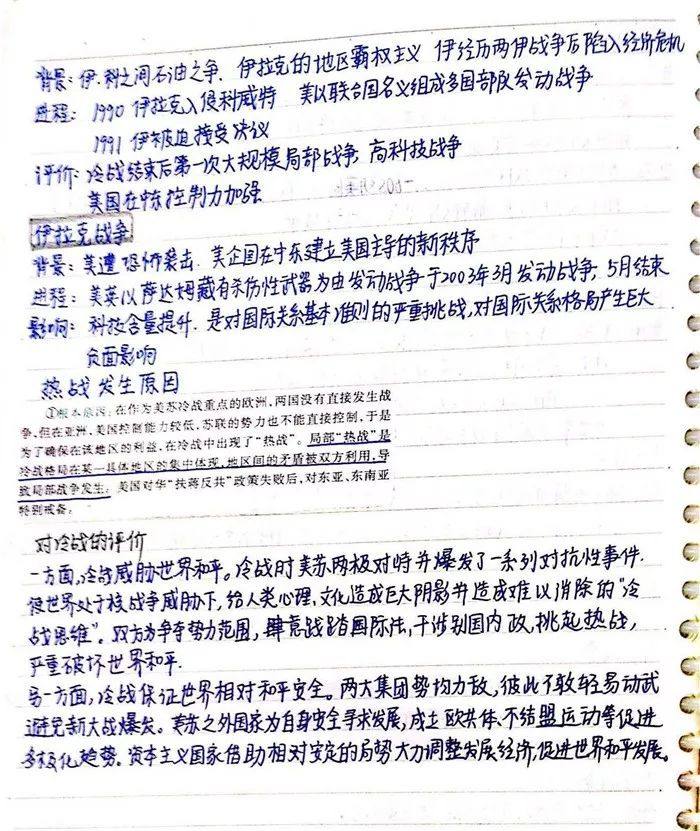 背景：伊、科之间石油之争、伊拉克的地区霸权主义 伊经历两伊战争后陷入经济危机
进程：1990 伊拉克入侵科威特 美以联合国名义组成多国部队发动战争
1991 伊被迫接受决议
评价：冷战结束后第一次大规模局部战争，高科技战争
美国在中东控制力加强
伊拉克战争
背景：美遭恐怖袭击、美企图在中东建立美国主导的新秩序
进程：美英以萨达姆藏有杀伤性武器为由发动战争于2003年3月发动战争，5月结束
影响：科技含量提升、是对国际关系基本准则的严重挑战，对国际关系格局产生巨大
负面影响
热战发生原因
①根本原因：在作为美苏冷战重点的欧洲，两国没有直接发生战
争，但在亚洲，美国控制能力较低，苏联的势力也不能直接控制，于是
为了确保在该地区的利益，在冷战中出现了“热战”。局部“热战”是
冷战格局在某一具体地区的集中体现，地区间的矛盾被双方利用，导
致局部战争发生。美国对华“扶蒋反共”政策失败后，对东亚、东南亚
特别戒备。
对冷战的评价
一方面，冷战威胁世界和平。冷战时美苏两极对峙并爆发了一系列对抗性事件、
使世界处于核战争威胁下，给人类心理、文化造成巨大阴影并造成难以消除的“冷
战思维”。双方为争夺势力范围，肆意践踏国际法，干涉别国内政，挑起热战，
严重破坏世界和平.
另一方面，冷战保证世界相对和平安全。两大集团势均力敌，彼此不敢轻易动武
避免新大战爆发。美苏之外国家为自身安全寻求发展，成立欧共体、不结盟运动等促进
多极化趋势。资本主义国家借助相对安定的局势大力调整发展经济，促进世界和平发展。